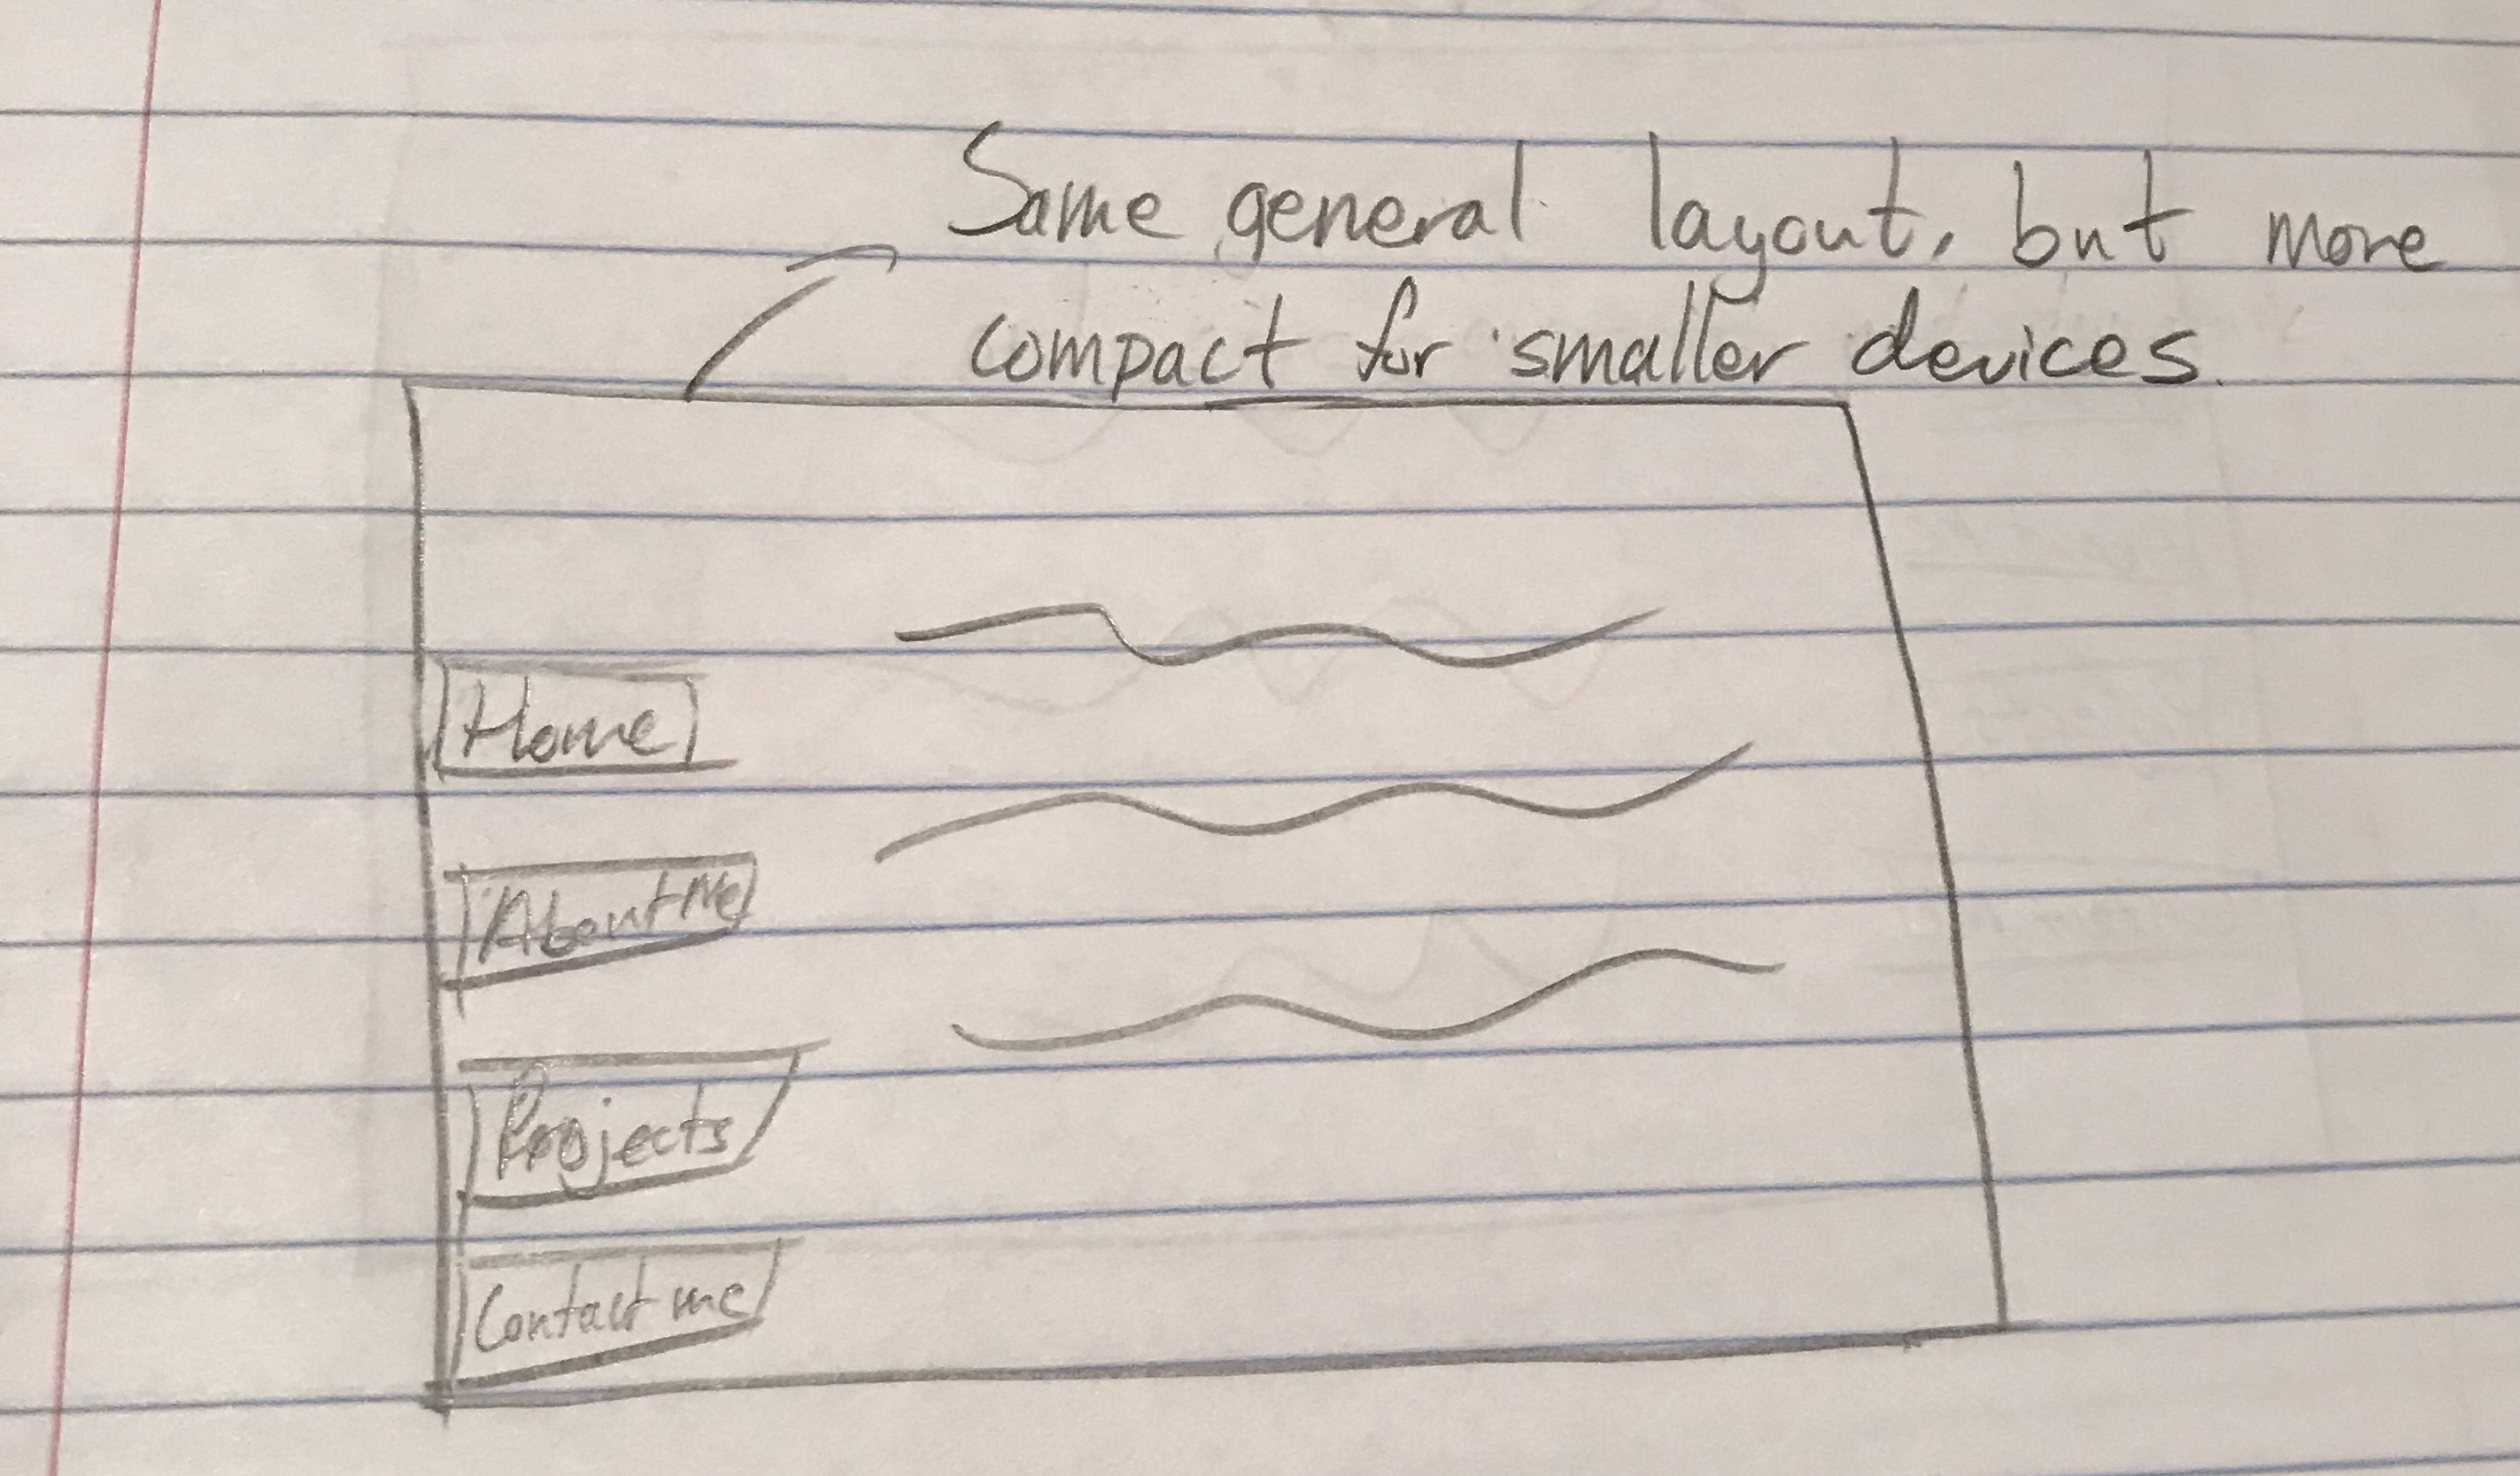 Same general layout, but more
compact for smaller devices.
Home
About Me
Projects
Contact me